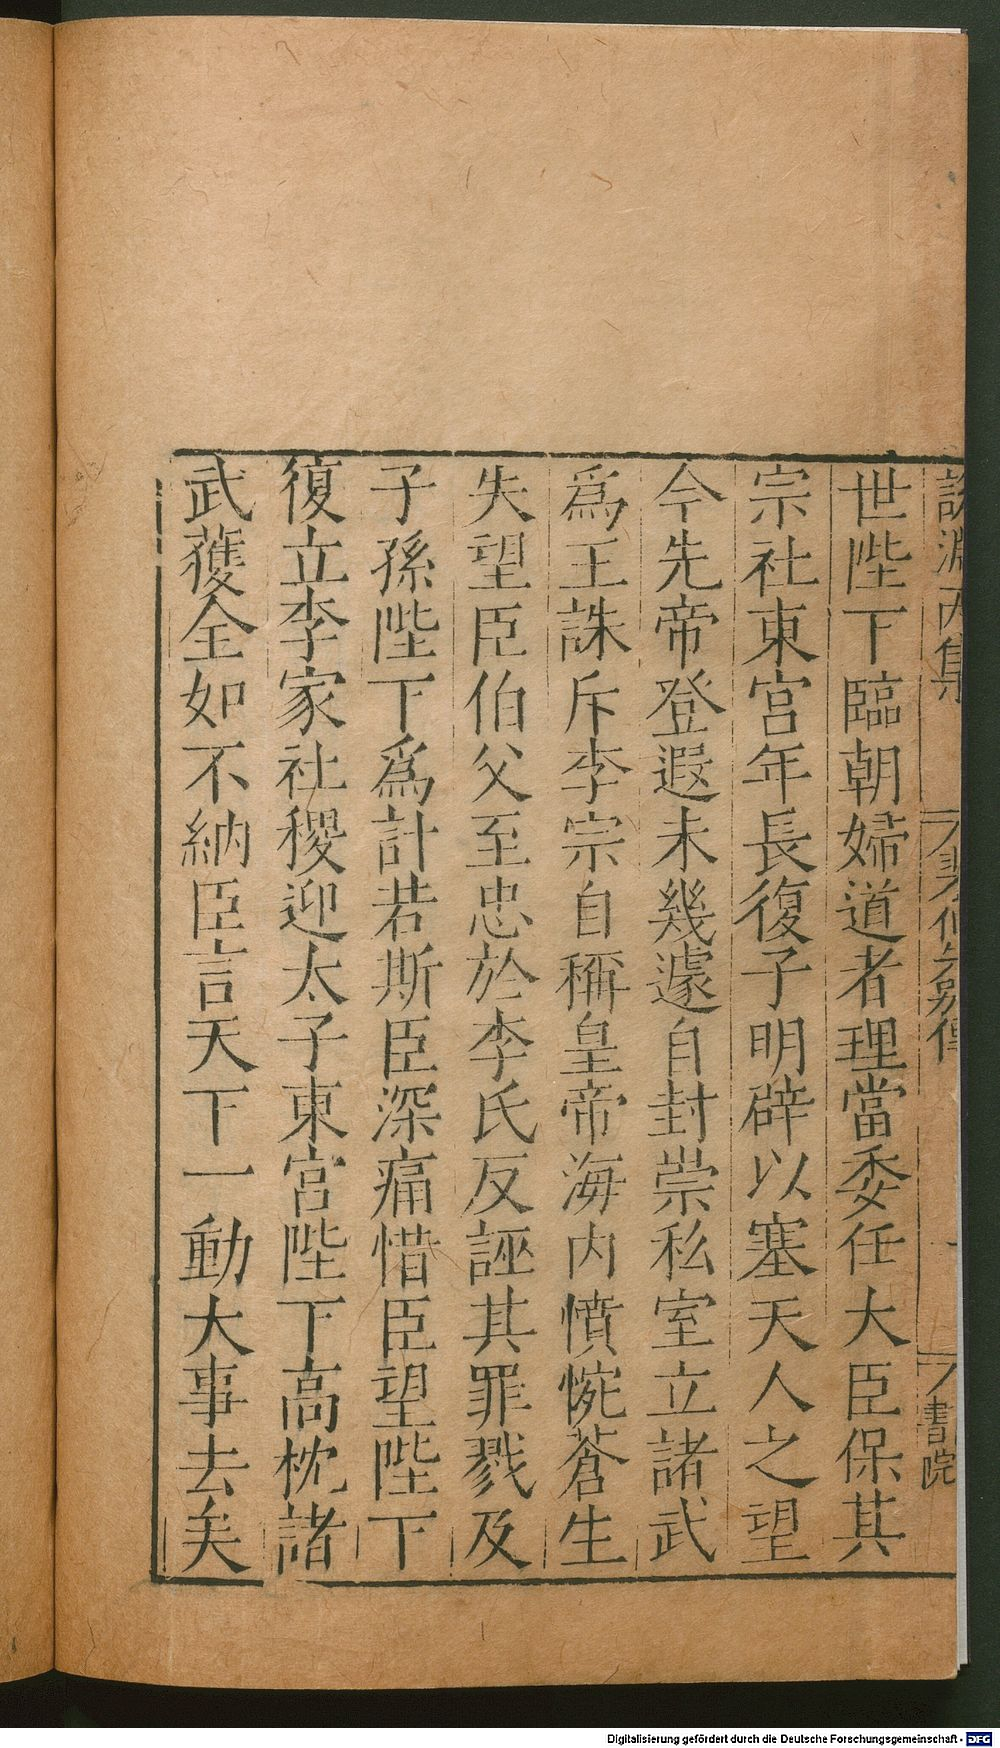 說淵丙集
裴伷先別傳
書院
世陛下臨朝婦道者理當委任大臣保其
宗社東宮年長復子明辟以塞天人之望
今先帝登遐未幾遽自封崇私室立諸武
爲王誅斥李宗自稱皇帝海内憤惋蒼生
失望臣伯父至忠於李氏反誣其罪戮及
子孫陛下爲計若斯臣深痛惜臣望陛下
復立李家社稷迎太子東宮陛下高枕諸
武獲全如不納臣言天下一動大事去矣
Digitalisierung gefördert durch die Deutsche Forschungsgemeinschaft - DFG